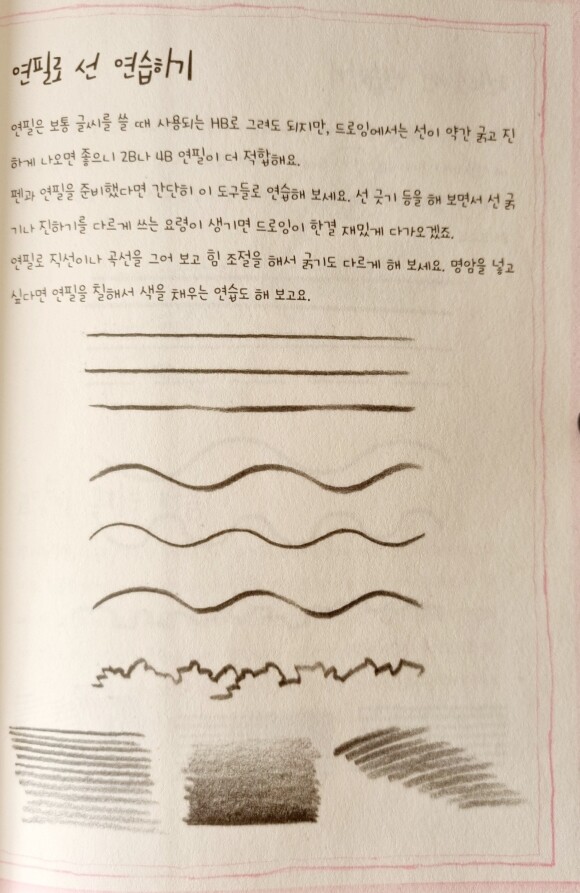 연필로 선 연습하기
연필은 보통 글씨를 쓸 때 사용되는 HB로 그려도 되지만, 드로잉에서는 선이 약간 굵고 진
하게 나오면 좋으니 2B나 4B 연필이 더 적합해요.
펜과 연필을 준비했다면 간단히 이 도구들로 연습해 보세요. 선 긋기 등을 해 보면서 선 굵
기나 진하기를 다르게 쓰는 요령이 생기면 드로잉이 한결 재밌게 다가오겠죠.
연필로 직선이나 곡선을 그어 보고 힘 조절을 해서 굵기도 다르게 해 보세요. 명암을 넣고
싶다면 연필을 칠해서 색을 채우는 연습도 해 보고요.